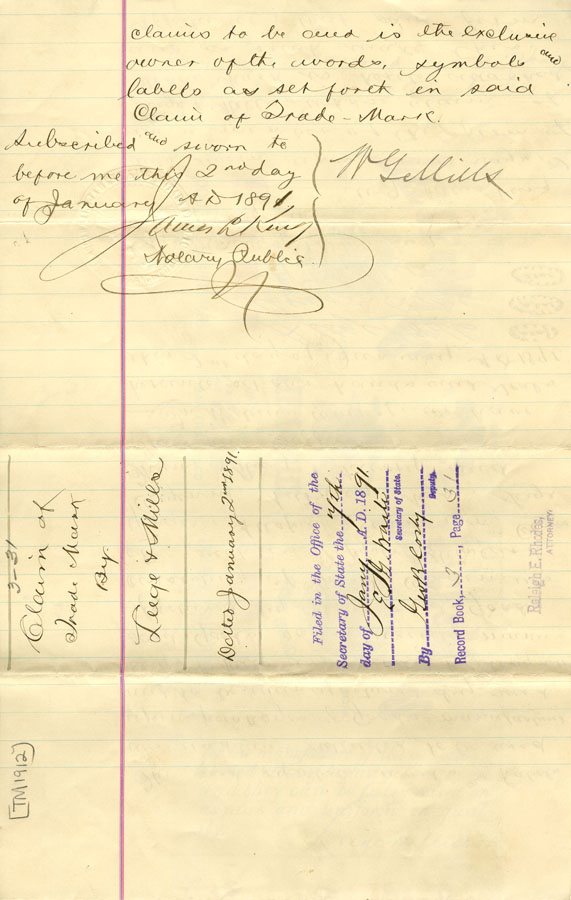 claims to be and is the exclusive
owner of the words, symbols and
labels as set forth in said
Claim of Trade-Mark.
Subscribed and sworn to
before me this 2nd day
of January AD 1891
W G Mills
James
Notary Public
3-31
Claim of
Trade Mark
By
& Mills
Dated January 2nd 1891.
Filed in the Office of the
Secretary of State the 7th
day of Jany A.D. 1891
Secretary of State.
By Deputy
Record Book, 3, Page 31
Raleigh E. Rhodes,
ATTORNEY.
[TM1912]